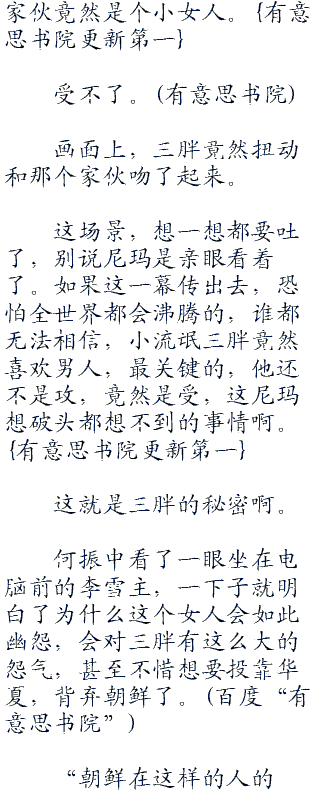 家伙竟然是个小女人。{有意
思书院更新第一}
受不了。(有意思书院)
画面上，三胖竟然扭动
和那个家伙吻了起来。
这场景，想一想都要吐
了，别说尼玛是亲眼看着
了。如果这一幕传出去，恐
怕全世界都会沸腾的，谁都
无法相信，小流氓三胖竟然
喜欢男人，最关键的，他还
不是攻，竟然是受，这尼玛
想破头都想不到的事情啊。
{有意思书院更新第一}
这就是三胖的秘密啊。
何振中看了一眼坐在电
脑前的李雪主，一下子就明
白了为什么这个女人会如此
幽怨，会对三胖有这么大的
怨气，甚至不惜想要投靠华
夏，背弃朝鲜了。(百度“有
意思书院”)
“朝鲜在这样的人的